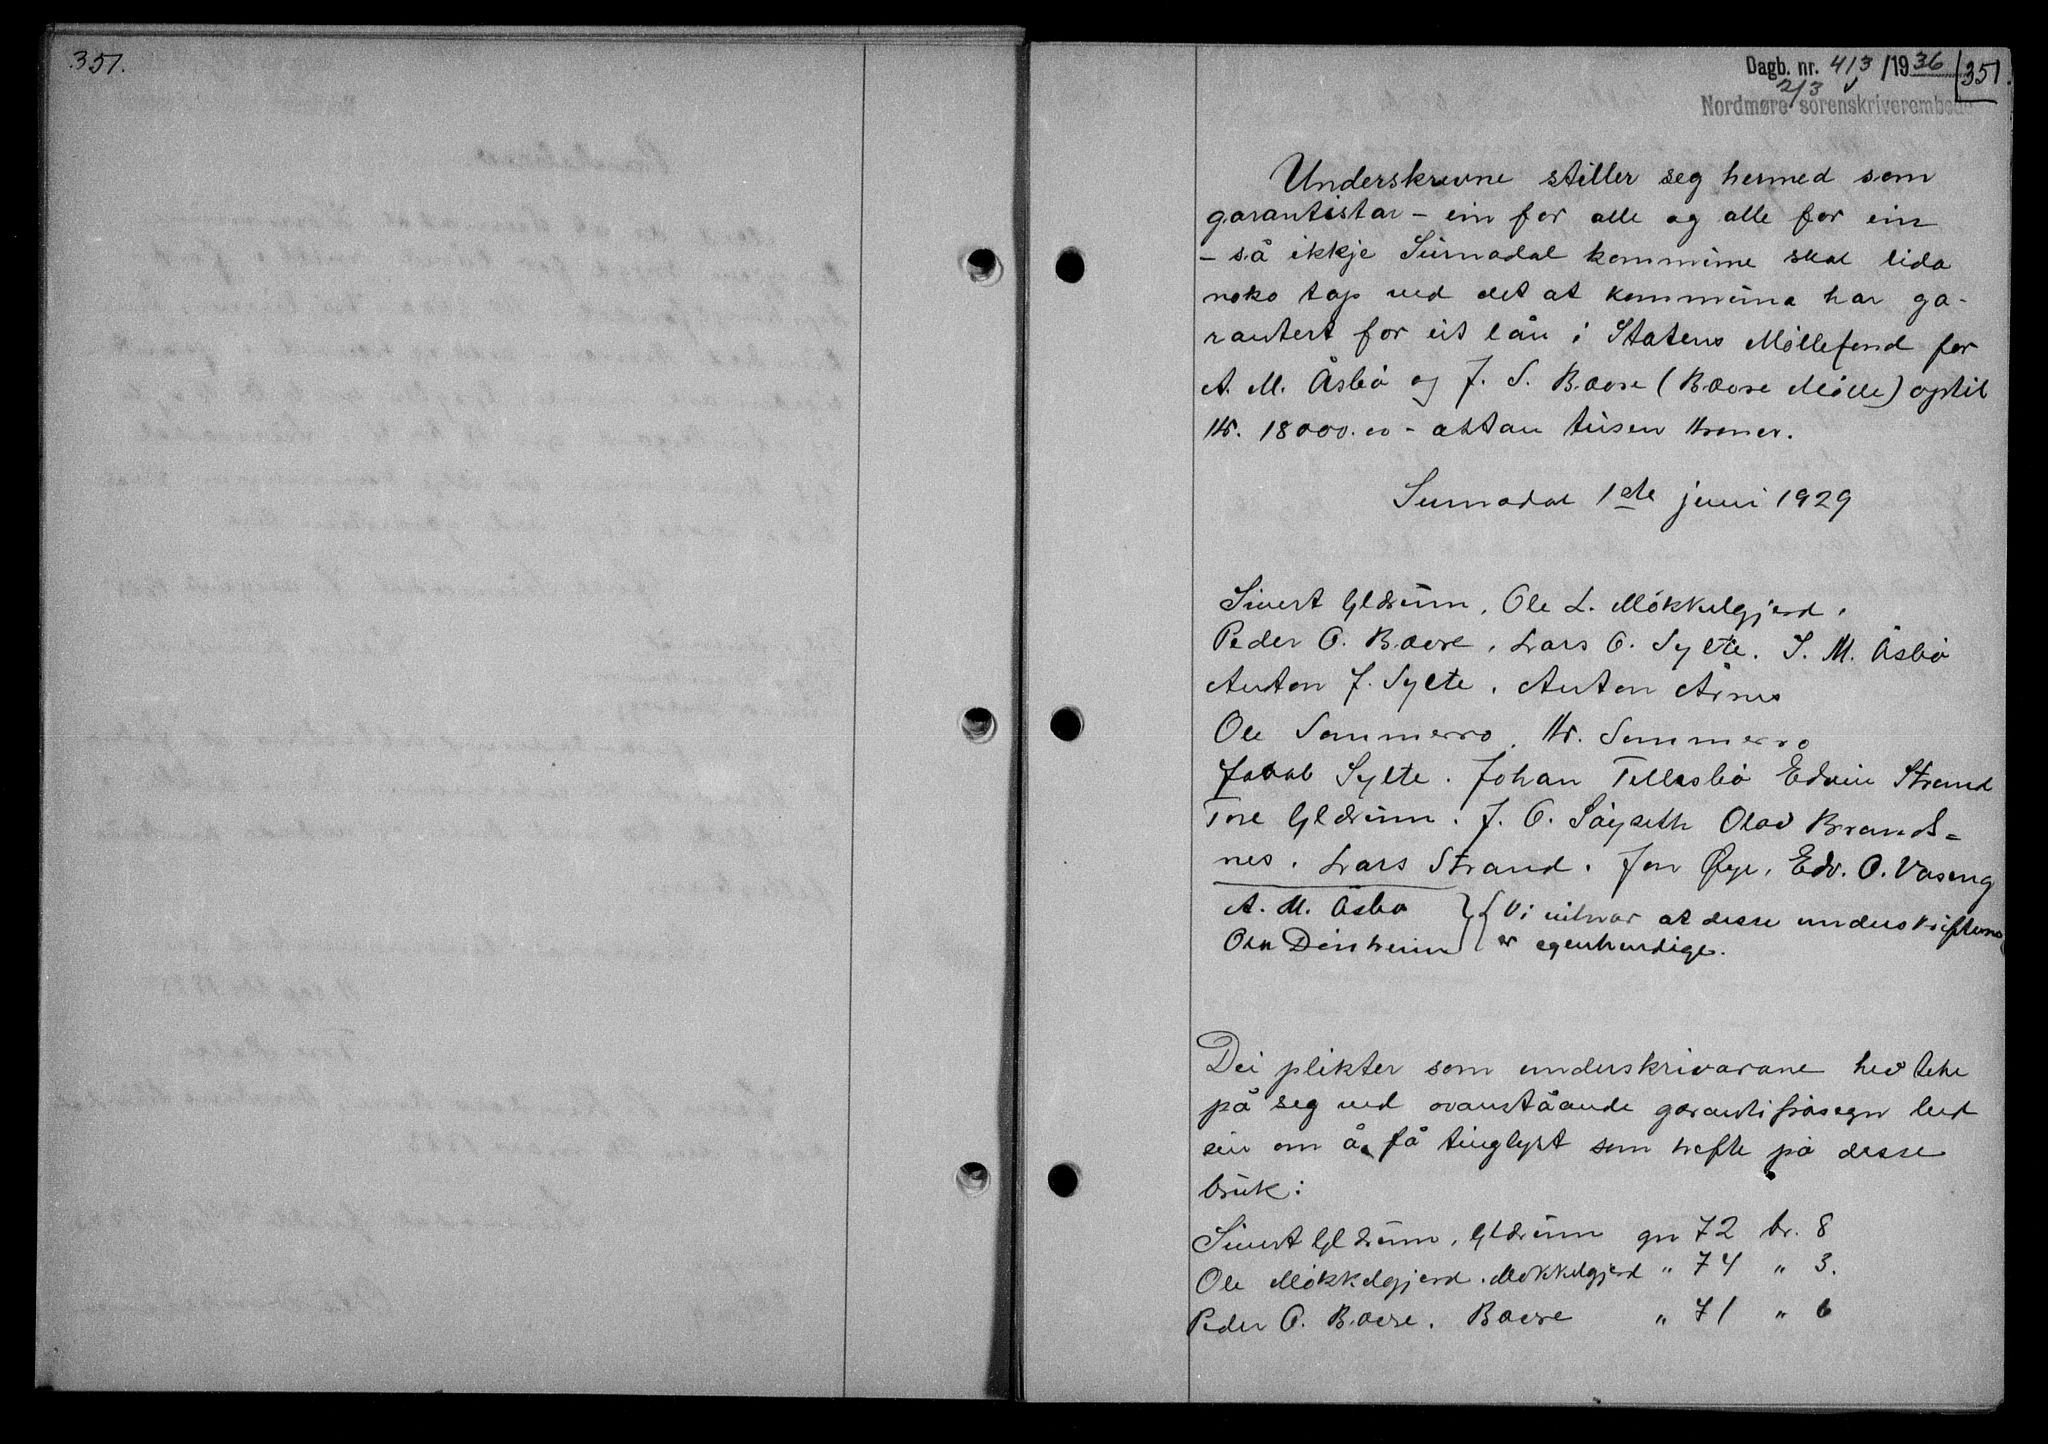 351.
Dagb. nr. 413/1936 351.
2/3
Nordmøre sorenskriverembede
Underskrevne stiller seg hermed som
garantistar – ein for alle og alle for ein
– så ikkje Surnadal kommune skal lida
noko tap ved det at kommuna har ga-
rantert for eit lån i Statens Møllefond for
A. M. Åsbø og J. S. Bævre (Bævre Mølle) optil
Kr. 18000.00 – attan tusen kroner.
Surnadal 1ste juni 1929
Sivert Glærum, Ole L. Møkkelgjerd.
Peder O. Bævre, Lars O. Sylte. S. M. Åsbø
Anton J. Sylte, Anton Årnes
Ole Sommerro, Kr. Sommerro
Jakob Sylte. Johan Tellesbø Edvin Strand
Tore Glærum. J. O. Sæyseth Olav Brands=
nes. Lars Strand. Jon Øye, Edv. O. Vaseng
A. M. Åsbø } { Vi vitnar at desse underskriftene
Ola Dønheim } er egenhendige.
Dei plikter som underskrivarane hev teke
på seg ved ovanståande garantifråsegn bed
ein om å få tinglyst som hefte på desse
bruk:
Sivert Glærum, Glærum gn 72 br. 8
Ole Møkkelgjerd. Møkkelgjerd " 74 " 3.
Peder O. Bævre. Bævre " 71 " 6